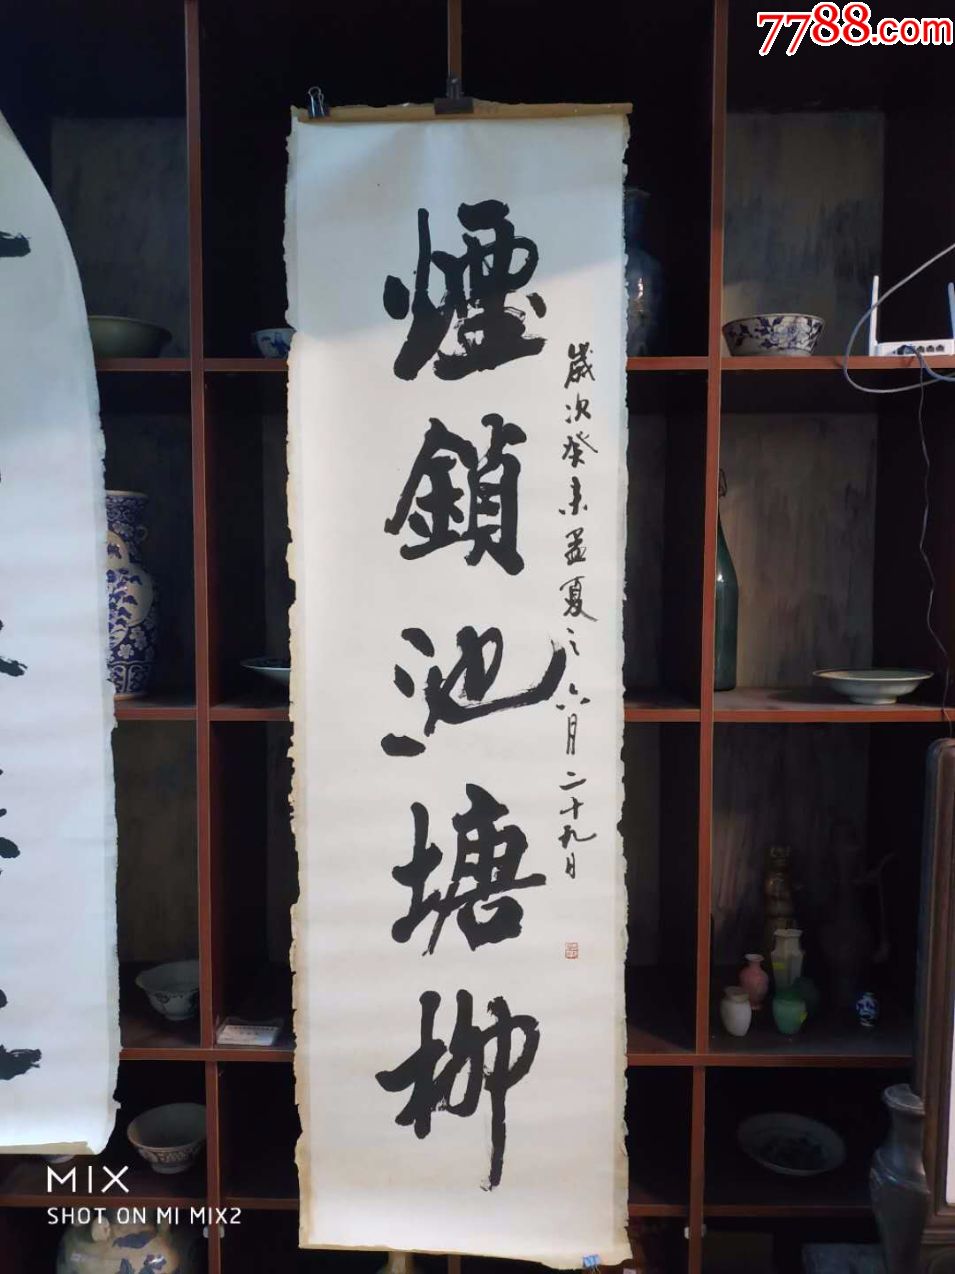 7788.com
煙鎖池塘柳
歲次癸未孟夏之六月二十九日
MIX
SHOT ON MI MIX2